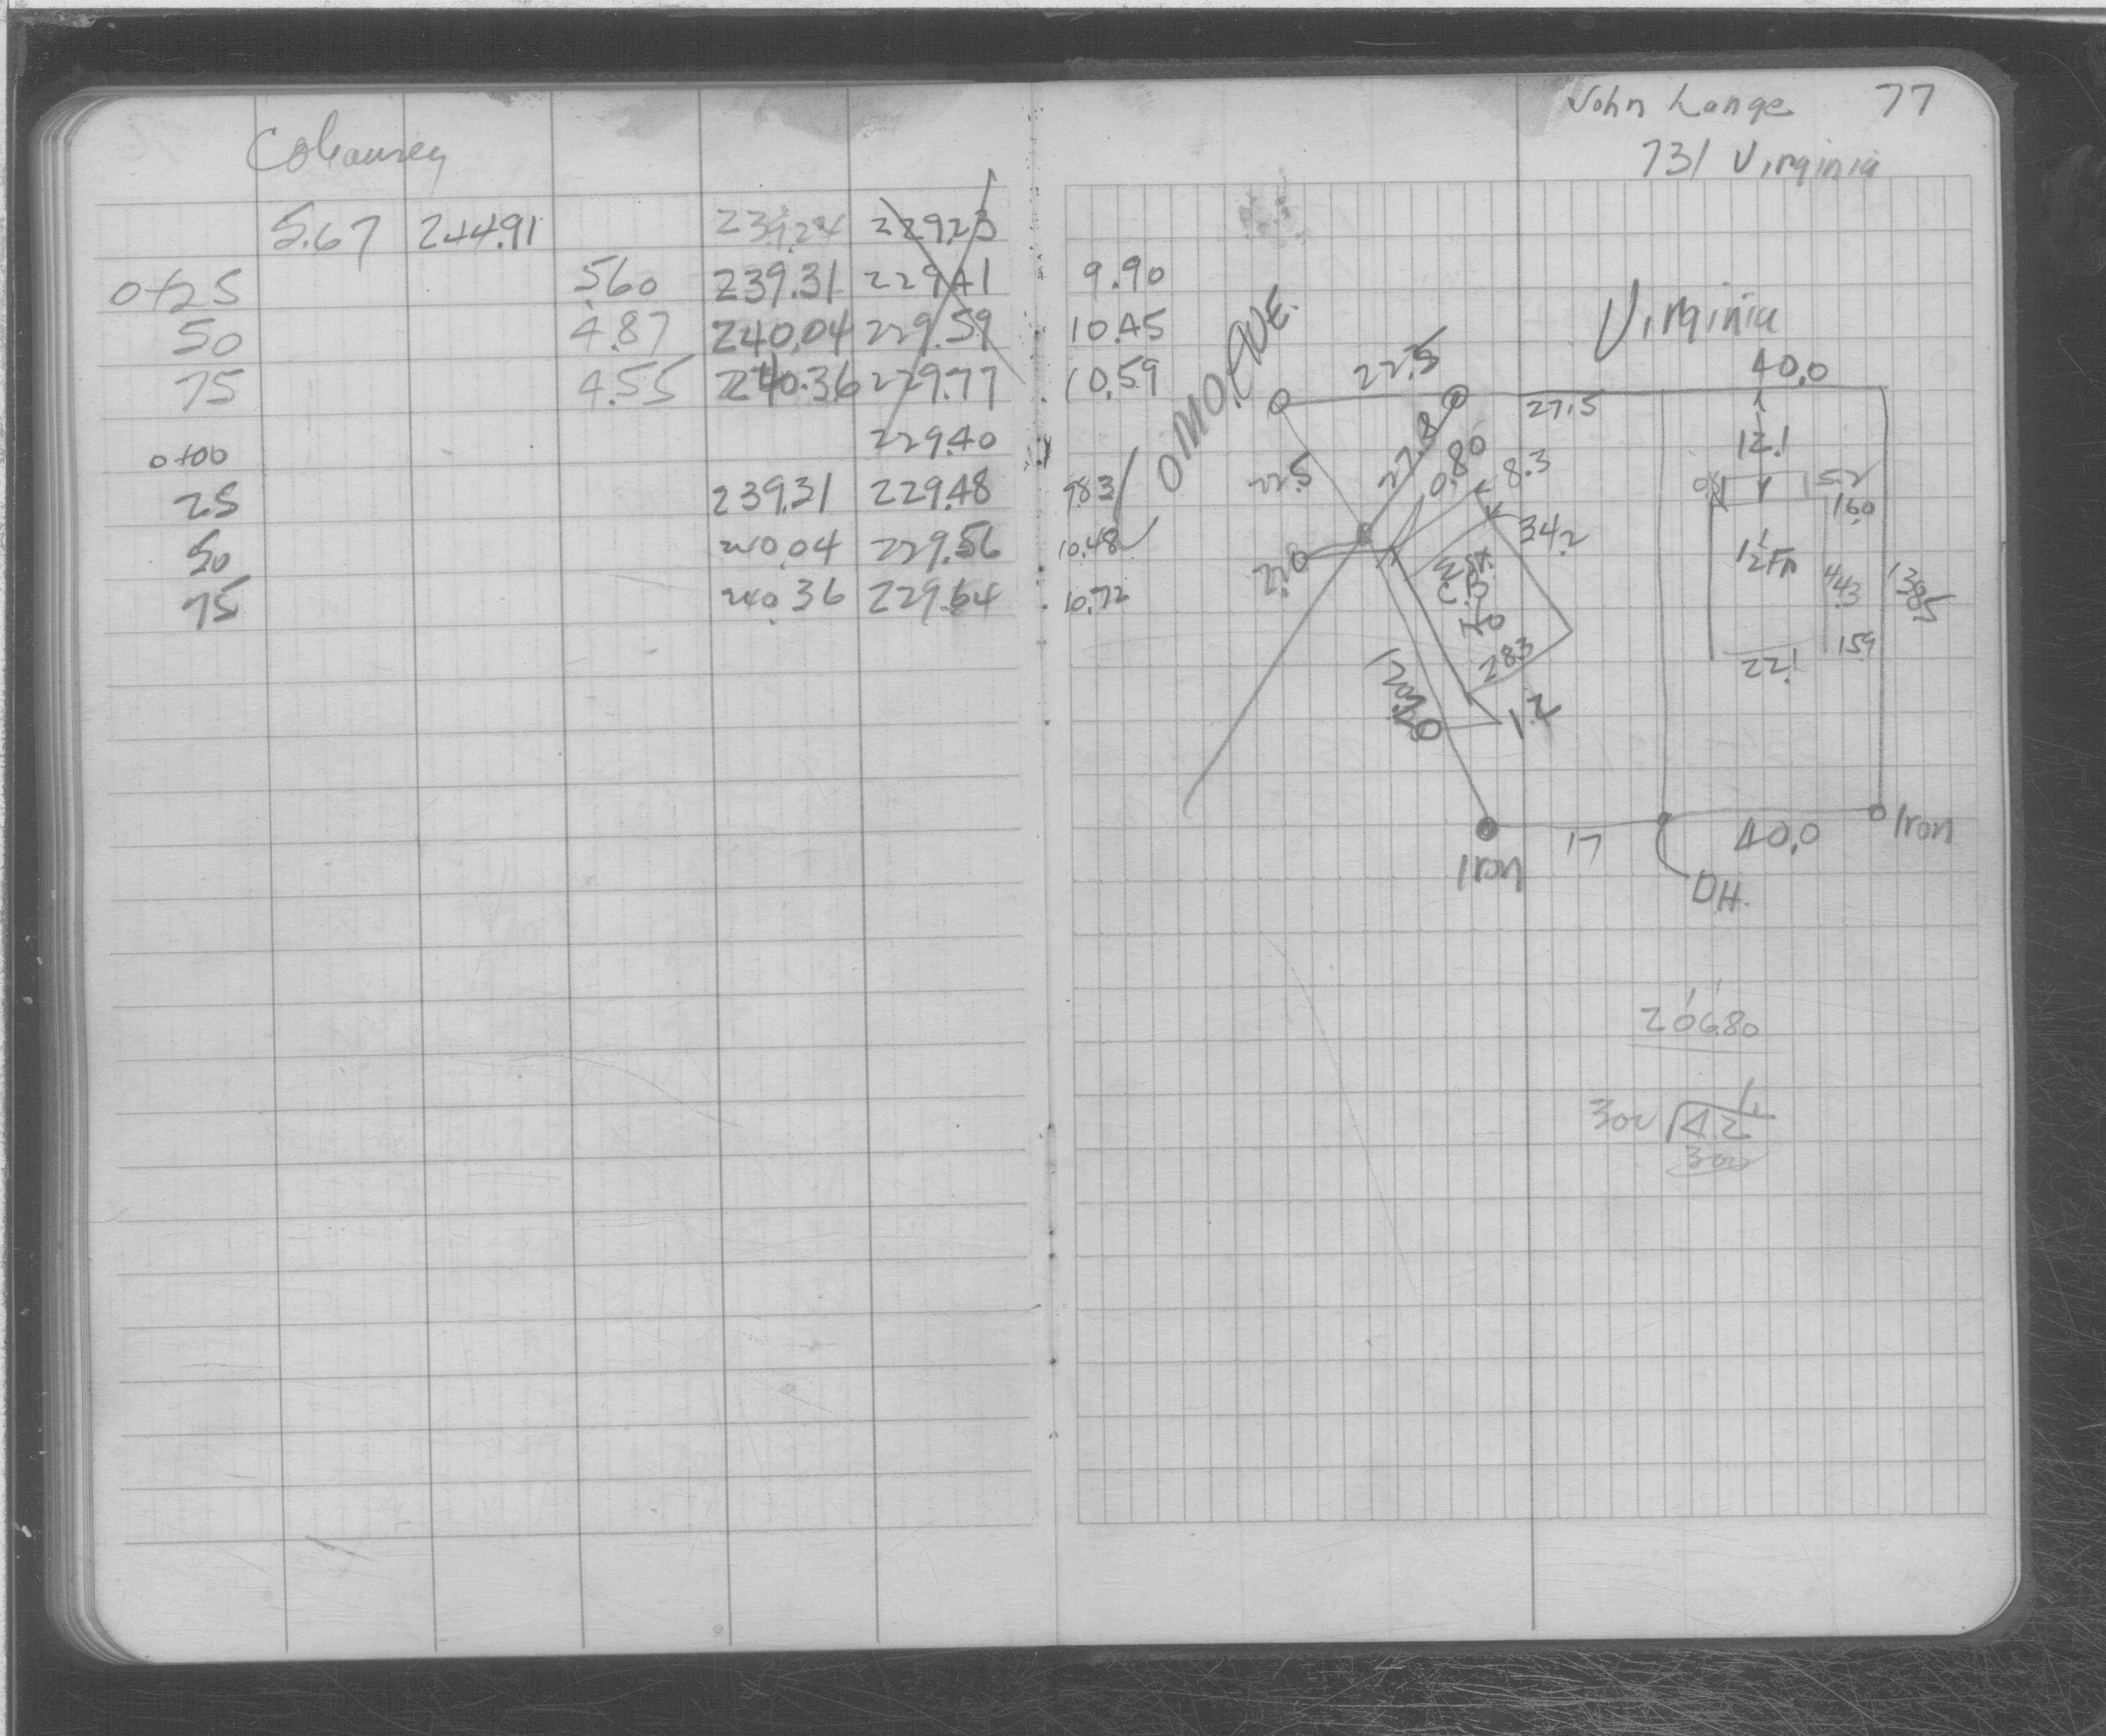 John Lange 77
731 Virginia
5.67 244.91 239.24 229.23
0+25 5.60 239.31 229.41 9.90
50 4.87 240.04 229.59 10.45
75 4.55 240.36 229.77 10.59
0+00 229.40
25 239.31 229.48 9.83
50 240.04 229.56 10.48
75 240.36 229.64 10.72
Virginia
22.5 40.0
27.5
27.8 12.1
22.5 0.80 8.3
5.2
16.0
34.2
22.0 1½ Fr
44.3 138.5
28.3 15.9
22.1
1.2
Iron 17 40.0 Iron
D.H.
206.80
300 4.2
300